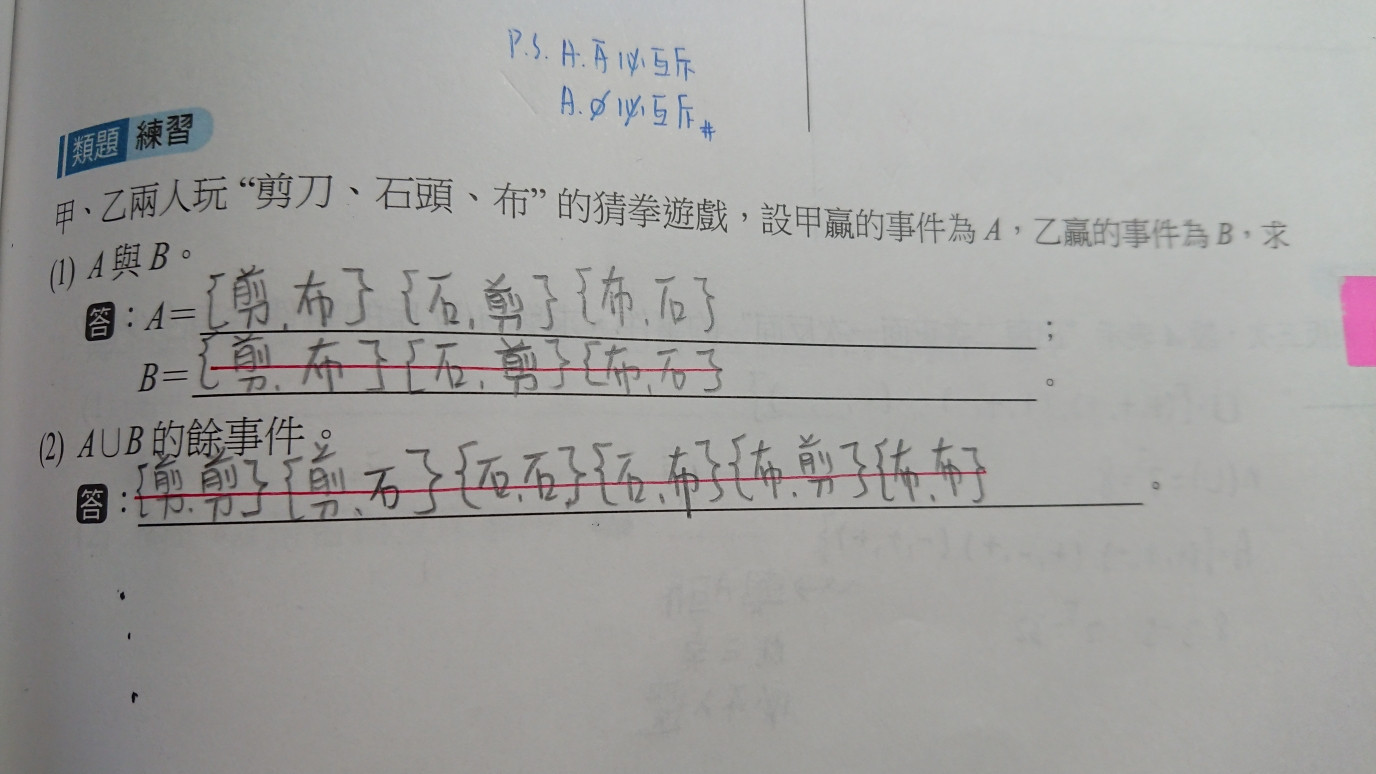 P.S. A.Ā 必互斥
A.∅ 必互斥#
類題 練習
甲、乙兩人玩“剪刀、石頭、布”的猜拳遊戲,設甲贏的事件為 A,乙贏的事件為 B,求
(1) A 與 B。
答:A={剪,布}{石,剪}{布,石};
B={剪,布}{石,剪}{布,石}。
(2) A∪B 的餘事件。
答:{剪,剪}{剪,石}{石,石}{石,布}{布,剪}{布,布}。